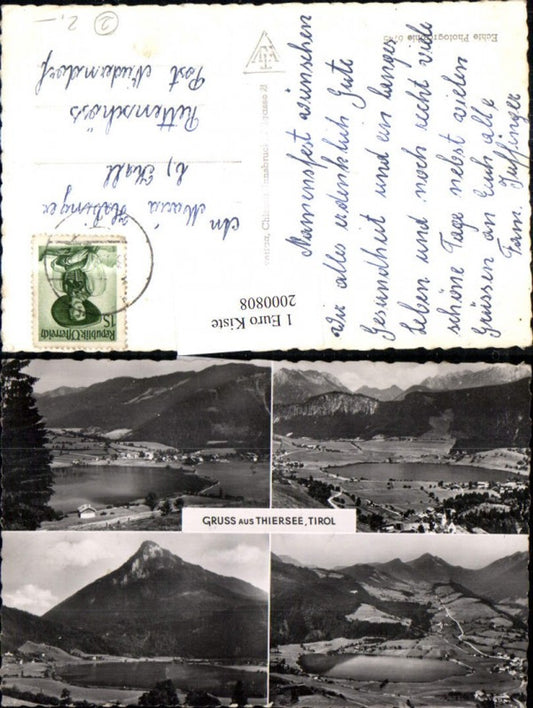 2.–
2
Echte Photographie 6745
Namensfest wünschen
Wir alles erdenklich Gute
Gesundheit und ein langes
Leben und noch recht viele
schöne Tage nebst vielen
Grüssen an Euch alle
Fam. Juffinger
An
Maria
b. Thall
Rettenschöss
Post Niederndorf
Innsbruck
1S
Republik Österreich
1 Euro Kiste
2000808
GRUSS AUS THIERSEE, TIROL